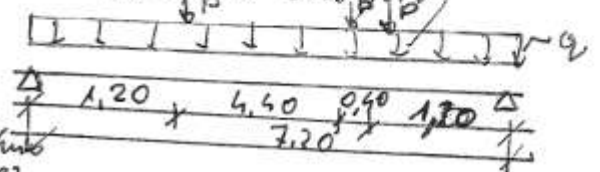 P P P
q
1,20 4,40 0,40 1,20
7,20